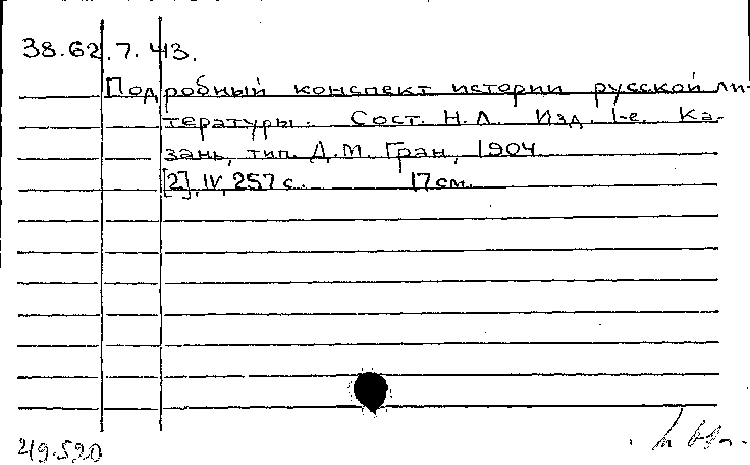 38.62.7.43.
Подробный конспект истории русской ли-
тературы. Сост. Н.Л. Изд. 1-е. Ка-
зань, тип. Д.М. Гран, 1904
[2], IV, 257 с. 17 см.
49.520